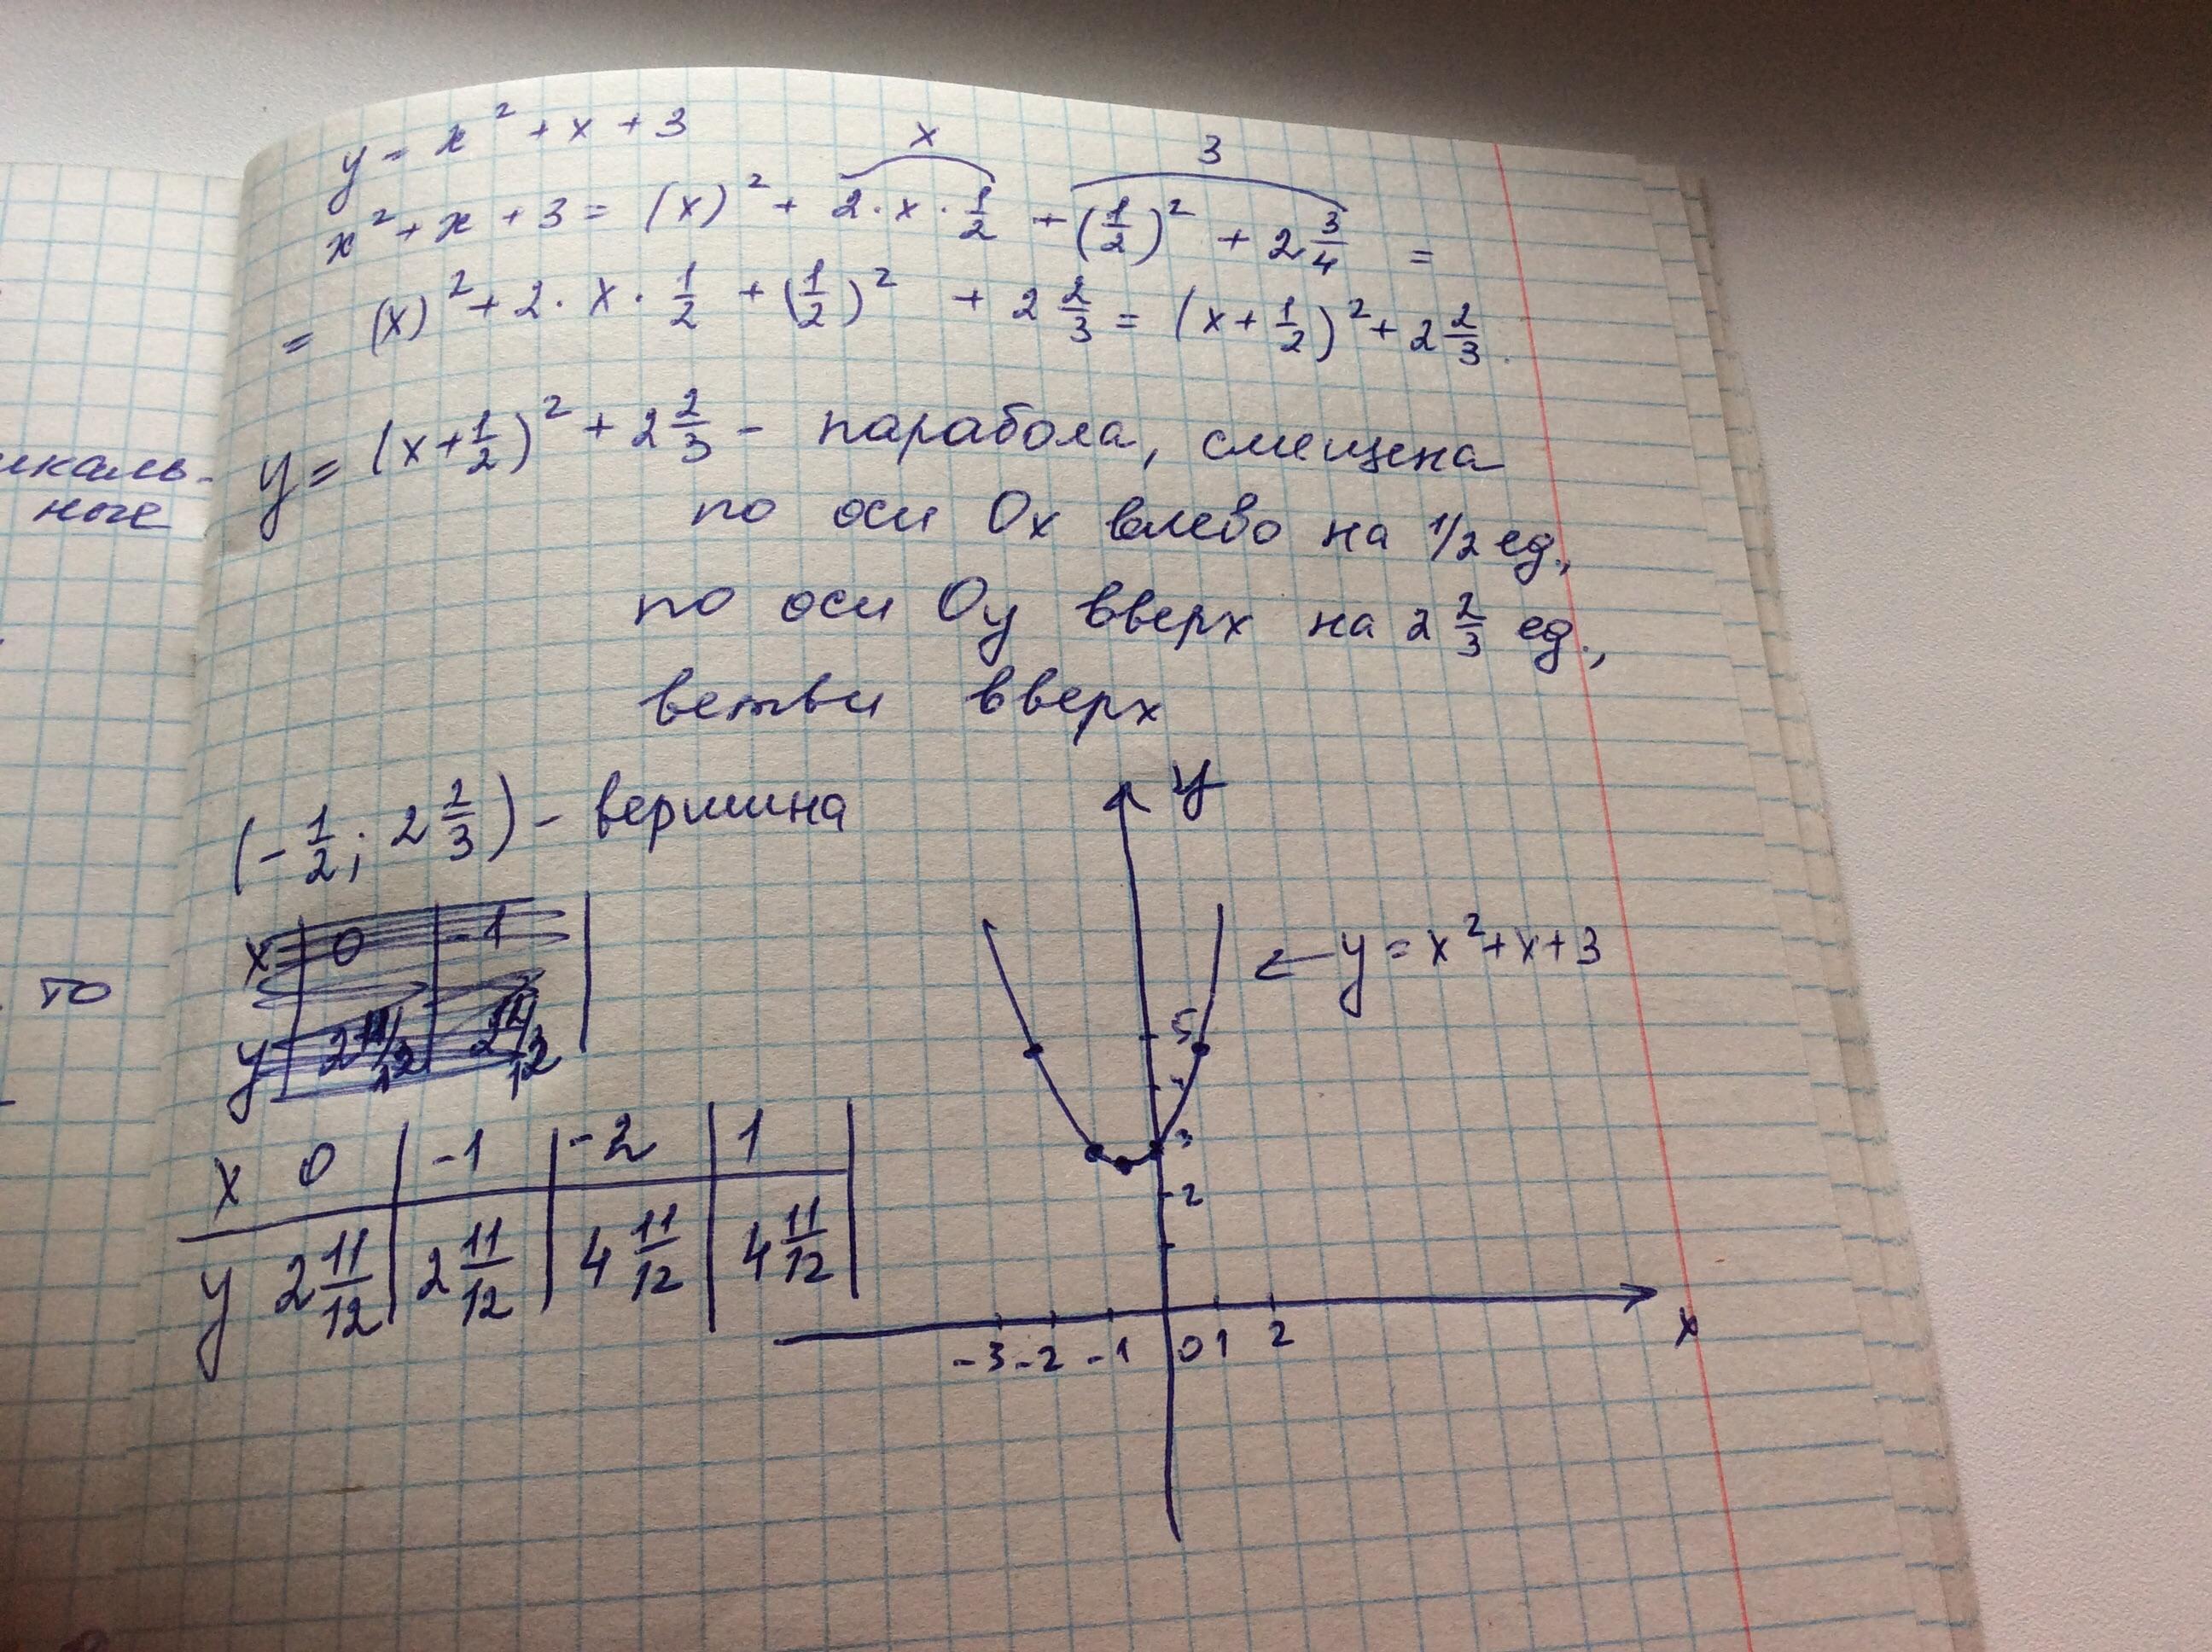 y = x² + x + 3
x 3
x² + x + 3 = (x)² + 2·x·1/2 + (1/2)² + 2 3/4 =
= (x)² + 2·x·1/2 + (1/2)² + 2 2/3 = (x + 1/2)² + 2 2/3.
y = (x + 1/2)² + 2 2/3 - парабола, смещена
по оси Ox влево на 1/2 ед.,
по оси Oy вверх на 2 2/3 ед.,
ветви вверх
(-1/2; 2 2/3) - вершина
x 0 -1
y
x 0 -1 -2 1
y 2 11/12 2 11/12 4 11/12 4 11/12
y
y = x² + x + 3
5
4
3
2
-3 -2 -1 0 1 2
x
икаль-
ные
то